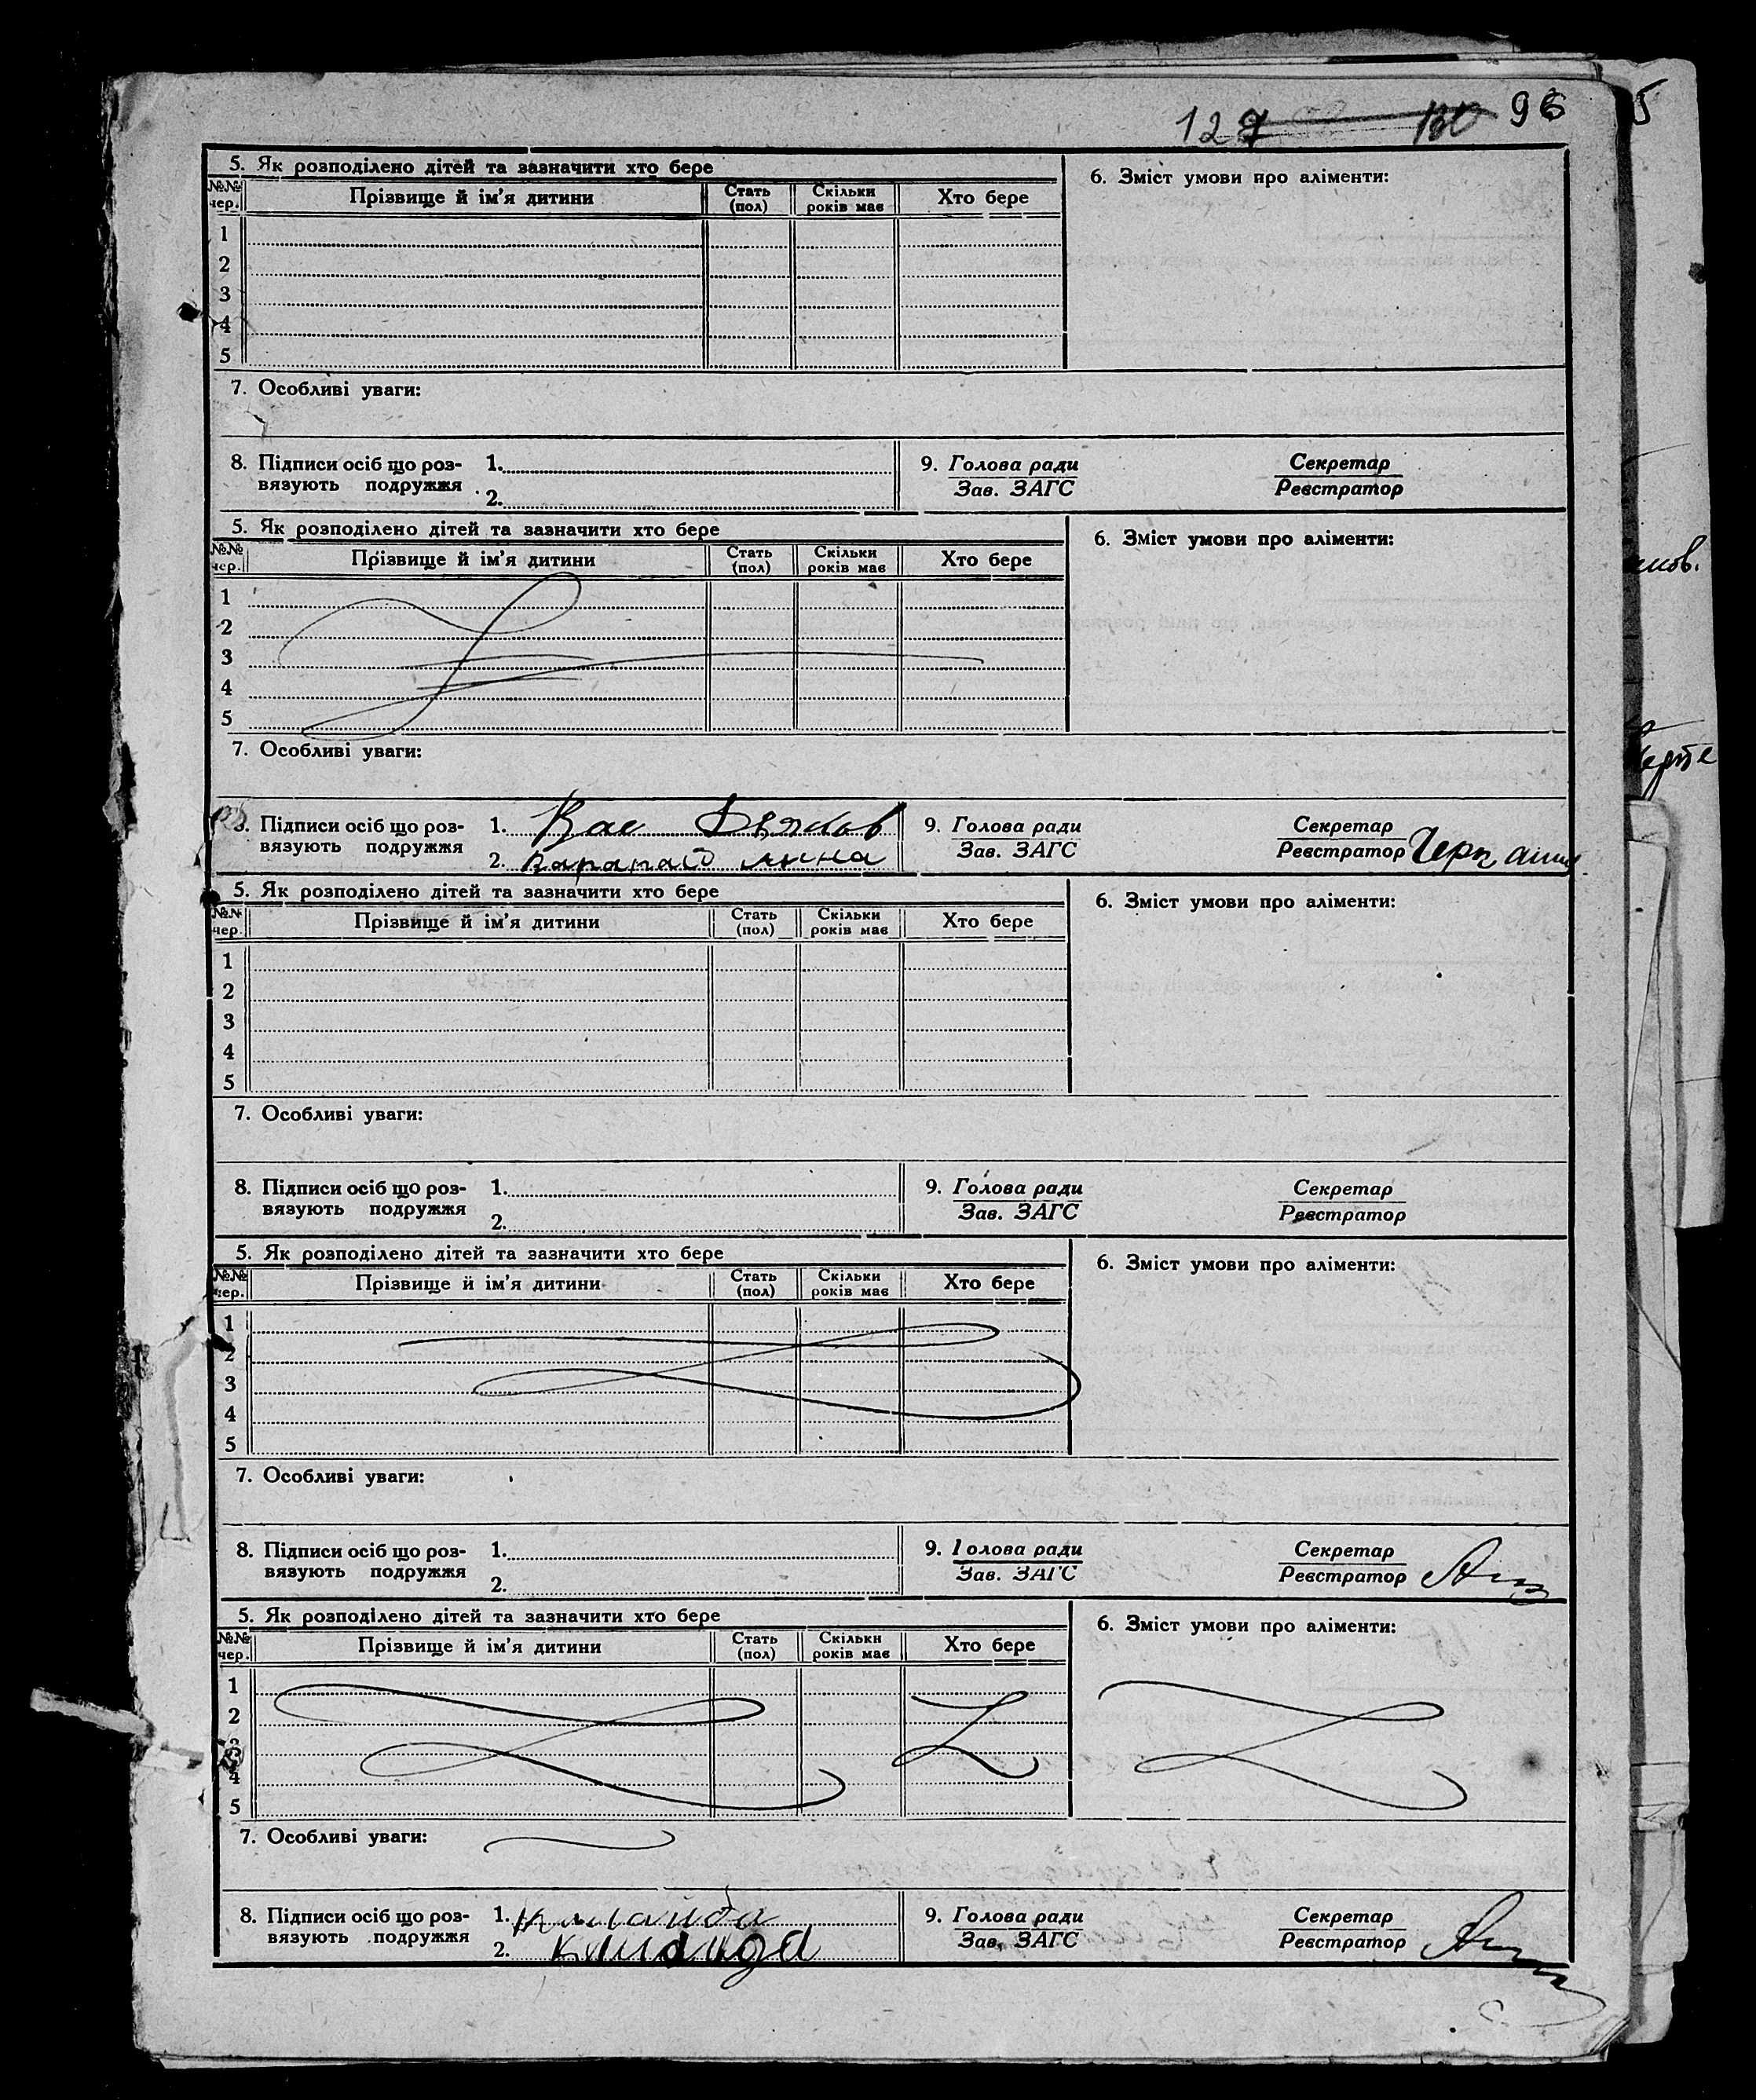 127 96
5. Як розподілено дітей та зазначити хто бере
6. Зміст умови про аліменти:
№№ чер. Прізвище й ім'я дитини Стать (пол) Скільки років має Хто бере
1
2
3
4
5
7. Особливі уваги:
8. Підписи осіб що роз- 1. 9. Голова ради Секретар
вязують подружжя 2. Зав. ЗАГС Реєстратор
5. Як розподілено дітей та зазначити хто бере
6. Зміст умови про аліменти:
№№ чер. Прізвище й ім'я дитини Стать (пол) Скільки років має Хто бере
1
2
3
4
5
7. Особливі уваги:
8. Підписи осіб що роз- 1. 9. Голова ради Секретар
вязують подружжя 2. Зав. ЗАГС Реєстратор
5. Як розподілено дітей та зазначити хто бере
6. Зміст умови про аліменти:
№№ чер. Прізвище й ім'я дитини Стать (пол) Скільки років має Хто бере
1
2
3
4
5
7. Особливі уваги:
8. Підписи осіб що роз- 1. 9. Голова ради Секретар
вязують подружжя 2. Зав. ЗАГС Реєстратор
5. Як розподілено дітей та зазначити хто бере
6. Зміст умови про аліменти:
№№ чер. Прізвище й ім'я дитини Стать (пол) Скільки років має Хто бере
1
2
3
4
5
7. Особливі уваги:
8. Підписи осіб що роз- 1. 9. Голова ради Секретар
вязують подружжя 2. Зав. ЗАГС Реєстратор
5. Як розподілено дітей та зазначити хто бере
6. Зміст умови про аліменти:
№№ чер. Прізвище й ім'я дитини Стать (пол) Скільки років має Хто бере
1
2
3
4
5
7. Особливі уваги:
8. Підписи осіб що роз- 1. 9. Голова ради Секретар
вязують подружжя 2. Зав. ЗАГС Реєстратор